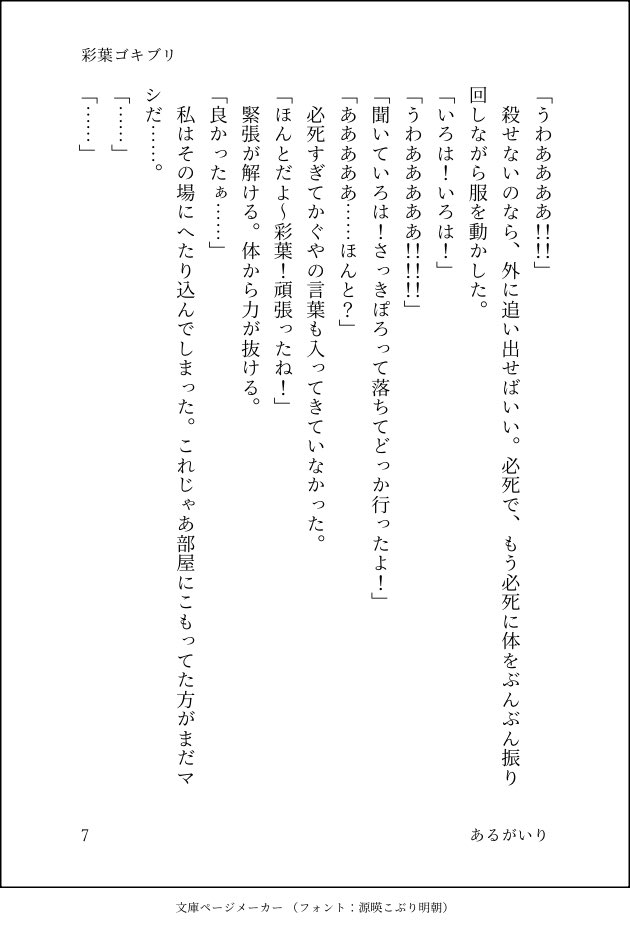 彩葉ゴキブリ
「うわあああ‼︎!」
殺せないのなら、外に追い出せばいい。必死で、もう必死に体をぶんぶん振り
回しながら服を動かした。
「いろは！いろは！」
「うわあああああ!!!!」
「聞いていろは！さっきぽろって落ちてどっか行ったよ！」
「あああああ……ほんと？」
必死すぎてかぐやの言葉も入ってきていなかった。
「ほんとだよ〜彩葉！頑張ったね！」
緊張が解ける。体から力が抜ける。
「良かったぁ……」
私はその場にへたり込んでしまった。これじゃあ部屋にこもってた方がまだマ
シだ……。
「……」
「……」
7
あるがいり
文庫ページメーカー （フォント：源暎こぶり明朝）